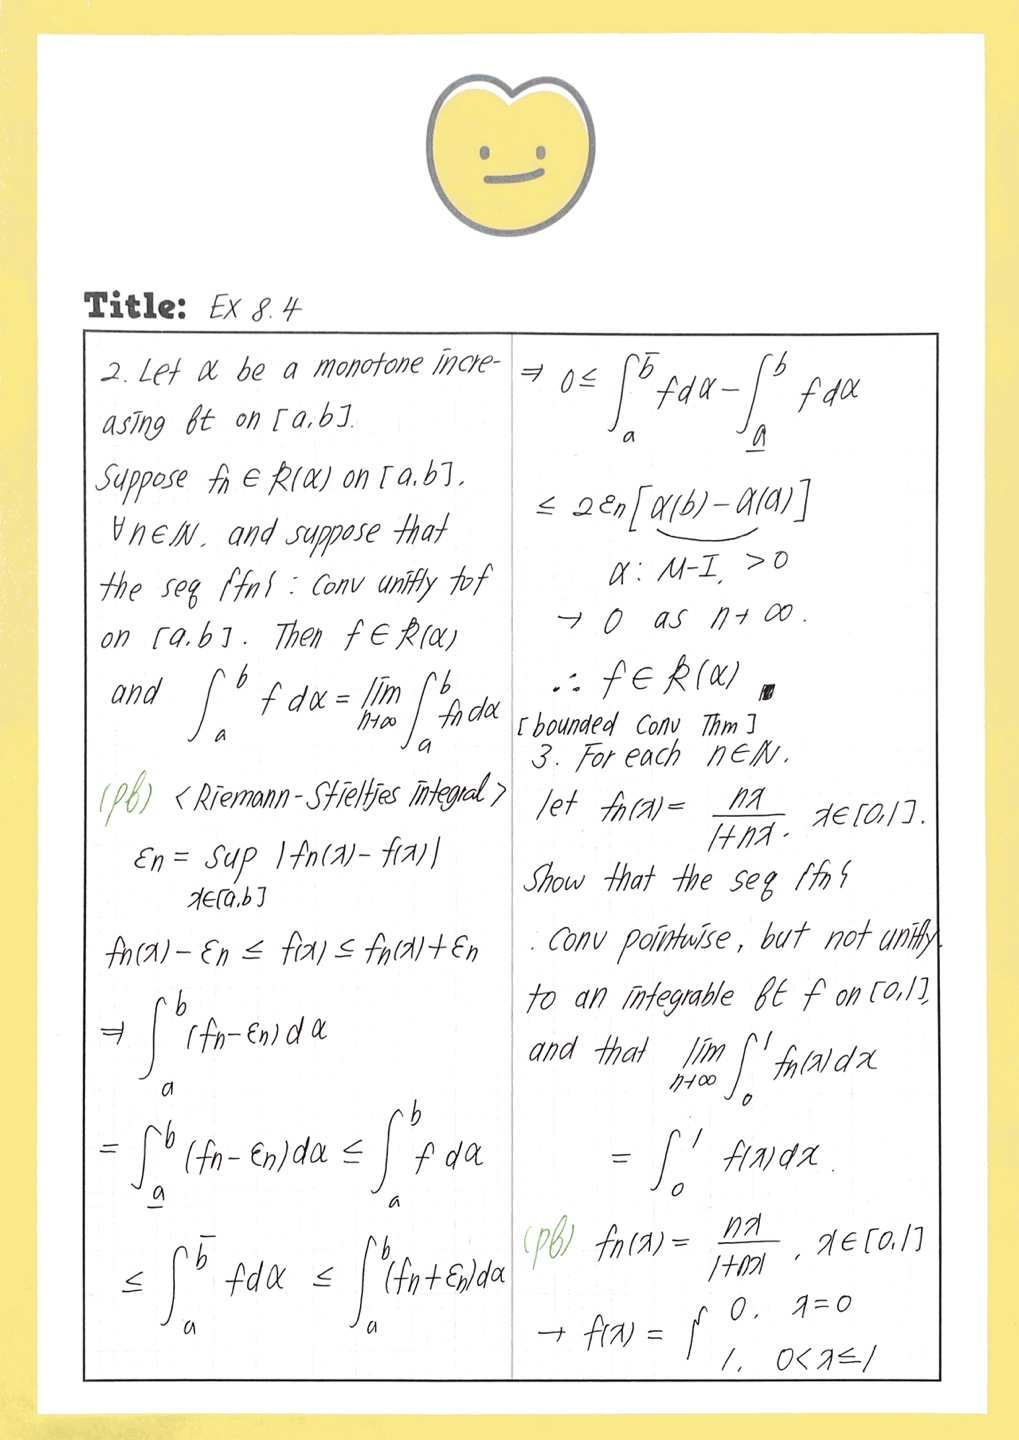 Title: EX 8.4
2. Let α be a monotone incre-
asing ft on [a,b].
Suppose fn ∈ R(α) on [a,b].
∀n∈N, and suppose that
the seq {fn} : conv unifly to f
on [a,b]. Then f ∈ R(α)
and ∫_a^b f dα = lim_{n→∞} ∫_a^b fn dα
(pf) <Riemann-Stieltjes integral>
εn = sup_{x∈[a,b]} |fn(x) - f(x)|
fn(x) - εn ≤ f(x) ≤ fn(x) + εn
⇒ ∫_a^b (fn-εn) dα
= ∫_{\underline{a}}^b (fn-εn)dα ≤ ∫_a^b f dα
≤ ∫_a^{\overline{b}} f dα ≤ ∫_a^b (fn+εn)dα
⇒ 0 ≤ ∫_a^{\overline{b}} f dα - ∫_{\underline{a}}^b f dα
≤ 2εn[α(b) - α(a)]
α: M-I, >0
→ 0 as n→∞.
∴ f ∈ R(α) ■
[bounded Conv Thm]
3. For each n∈N.
let fn(x) = nx/(1+nx). x∈[0,1].
Show that the seq {fn}
. conv pointwise, but not unifly.
to an integrable ft f on [0,1],
and that lim_{n→∞} ∫_0^1 fn(x)dx
= ∫_0^1 f(x)dx.
(pf) fn(x) = nx/(1+nx), x∈[0,1]
→ f(x) = { 0. x=0
1. 0<x≤1